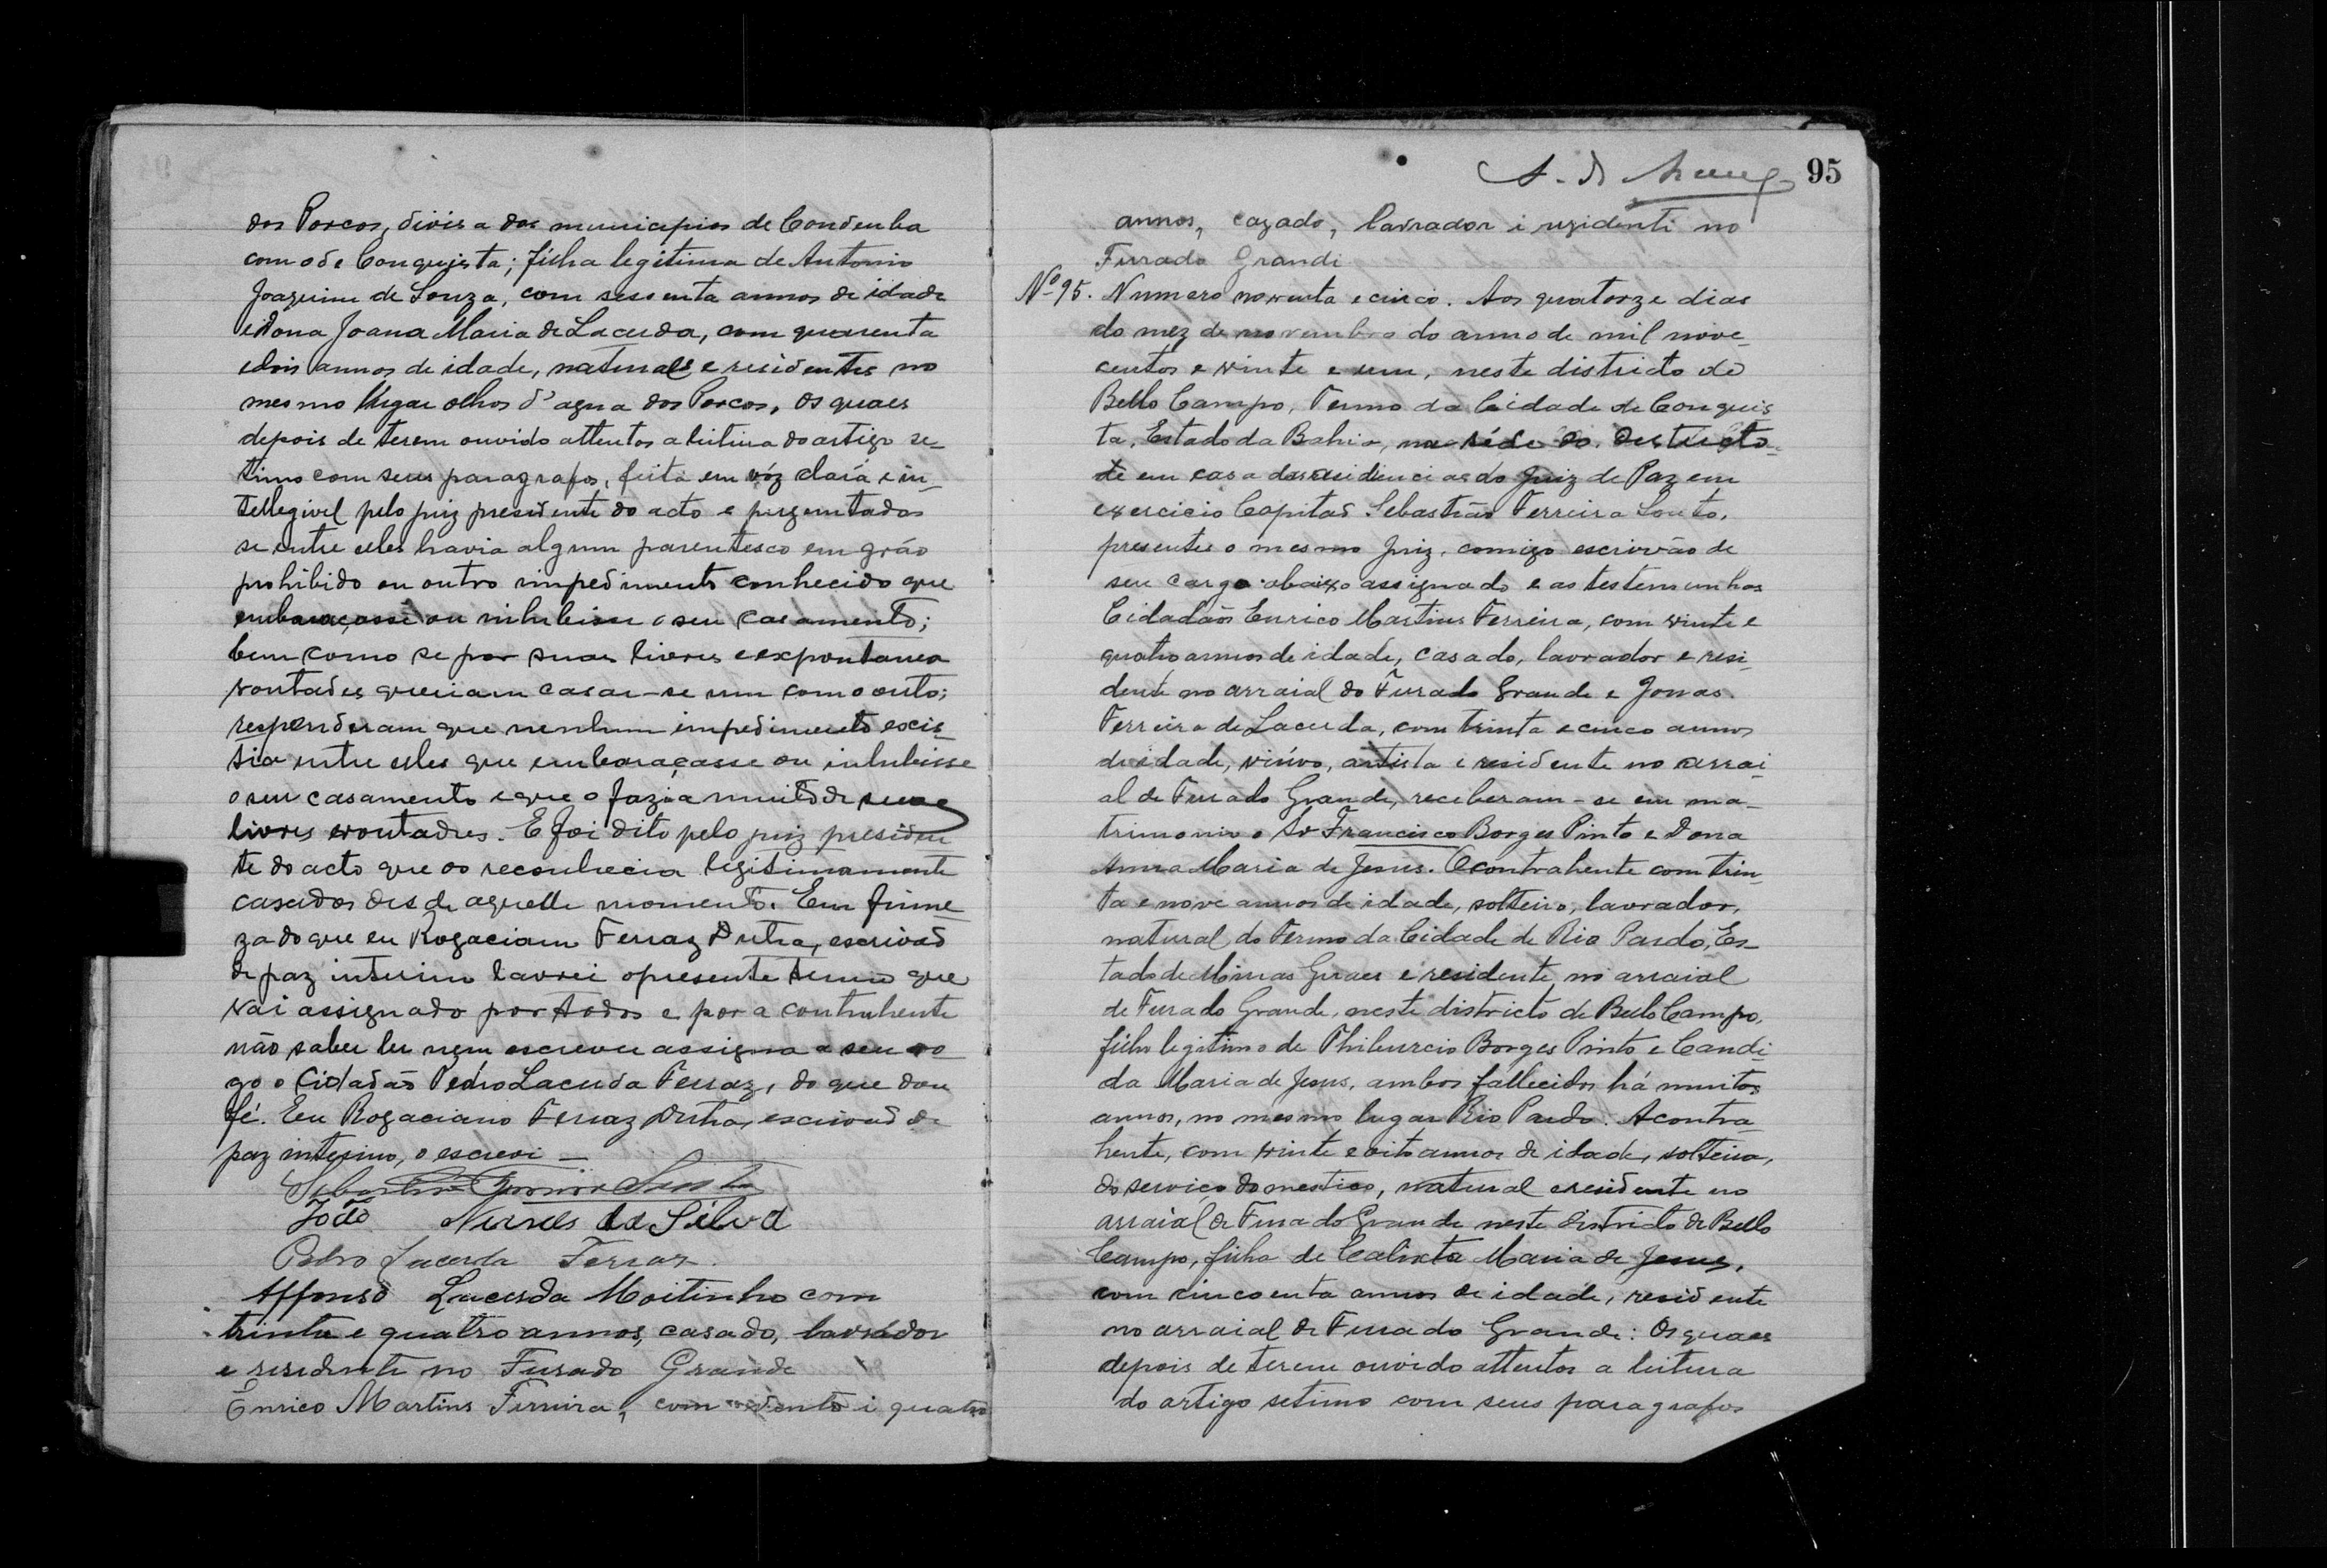 dos Porcos, divisa dos municipios de Condeuba
com o de Conquista; filha legitima de Antonio
Joaquim de Souza, com sessenta annos de idade
e dona Joana Maria de Lacerda, com quarenta
e dois annos de idade, naturaes e residentes no
mesmo lugar olhos d'agua dos Porcos, os quaes
depois de terem ouvido attentos a leitura do artigo se-
timo com seus paragrafos, feita em vóz clará e in-
tellegivel pelo juiz presidente do acto e perguntados
se entre elles havia algum parentesco em gráo
prohibido ou outro impedimento conhecido que
embaraçasse ou inhibisse o seu casamento;
bem como se por suas livres e expontanea
vontades queriam casar-se um com o outo;
responderam que nenhum impedimento exis-
tia entre elles que embaraçasse ou inhibisse
o seu casamento e que o fazia muito de suas
livres vontades. E foi dito pelo juiz presiden
te do acto que os reconhecia legitimamente
casados desde aquelle momento. Em firme-
za do que eu Rogaciano Ferraz Dutra, escrivaõ
de paz interino lavrei o presente termo que
vai assignado por todos e por a contrahente
não saber ler nem escrever assigna a seu ro-
go o Cidadaõ Pedro Lacerda Ferraz, do que dou
fé. Eu Rogaciano Ferraz Dutra, escrivaõ de
paz interino, o escrevi —
Sebastião Ferreira Souto
João Nunes da Silva
Pedro Lacerda Ferraz.
Affonso Lacerda Moitinho com
trinta e quatro annos, casado, lavrador
e residente no Furado Grande
Enrico Martins Ferreira, com e quatro
95
annos, cazado, lavrador i rezidenti no
Furado Grandi
Nº 95. Numero noventa e cinco. Aos quatorze dias
do mez de novembro do anno de mil nove-
centos e vinte e um, neste districto de
Bello Campo, Termo da Cidade de Conquis
ta, Estado da Bahia, na séde do destricto
em casa das residencias do Juiz de Paz em
exercicio Capitaõ Sebastião Ferreira Souto,
presentes o mesmo Juiz, comigo escrivão de
seu cargo abaixo assignado e as testemunhas
Cidadãos Enrico Martins Ferreira, com vinte e
quatro annos de idade, casado, lavrador e resi-
dente no arraial do Furado Grande e Jonas
Ferreira de Lacerda, com trinta e cinco annos
de idade, viúvo, artista e residente no arrai-
al de Furado Grande, receberam-se em ma-
trimonio o Sr Francisco Borges Pinto e Dona
Anna Maria de Jesus. O contrahente com trin-
ta e nove annos de idade, solteiro, lavrador,
natural do Termo da Cidade de Rio Pardo, Es-
tado de Minas Geraes e residente no arraial
de Furado Grande, neste districto de Bello Campo,
filho legitimo de Thiburcio Borges Pinto e Candi-
da Maria de Jesus, ambos fallecidos há muitos
annos, no mesmo lugar Rio Pardo. A contra-
hente, com vinte e oito annos de idade, solteira,
do serviço domestico, natural e residente no
arraial de Furado Grande neste districto de Bello
Campo, filha de Calixta Maria de Jesus,
com cincoenta annos de idade, residente
no arraial de Furado Grande: Os quaes
depois de terem ouvido attentos a leitura
do artigo setimo com seus paragrafos